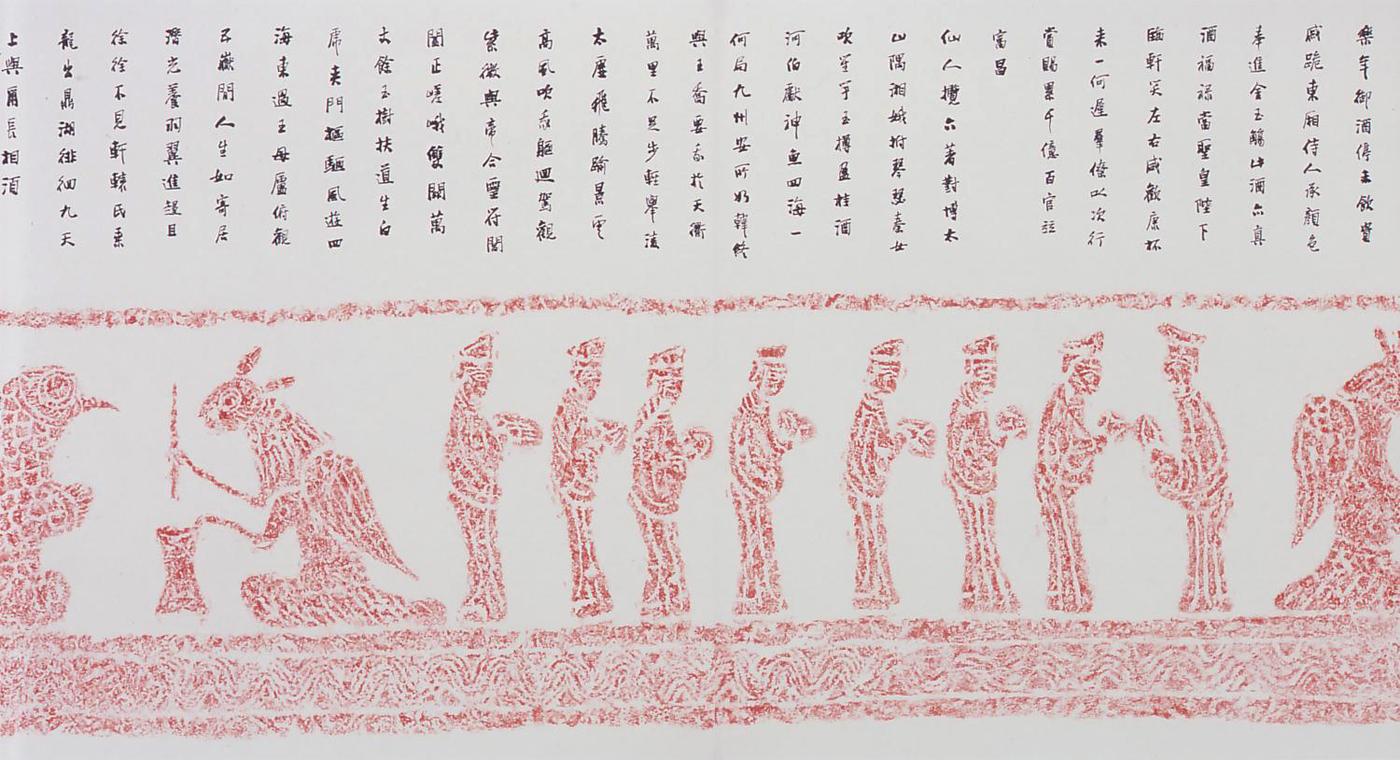 樂年御酒停未飲貴
戚跪東廂侍人承顏色
奉進金玉觴此酒亦真
酒福祿當聖皇陛下
臨軒笑左右咸歡康杯
來一何遲羣僚以次行
賞賜累千億百官並
富昌
仙人攬六著對博太
山隅湘娥拊琴瑟秦女
吹笙竽玉樽盈桂酒
河伯獻神魚四海一
何局九州安所如韓終
與王喬要我於天衢
萬里不足步輕舉淩
太虛飛騰踰景雲
高風吹我軀迴駕觀
紫微與帝合靈符閶
闔正嵯峨雙闕萬
丈餘玉樹扶道生白
虎夾門樞驅風遊四
海東過王母廬俯觀
五嶽間人生如寄居
潛光養羽翼進趨且
徐徐不見軒轅氏乘
龍出鼎湖徘徊九天
上與爾長相須